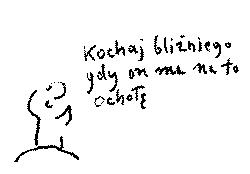 Kochaj bliźniego
gdy on ma na to
ochotę